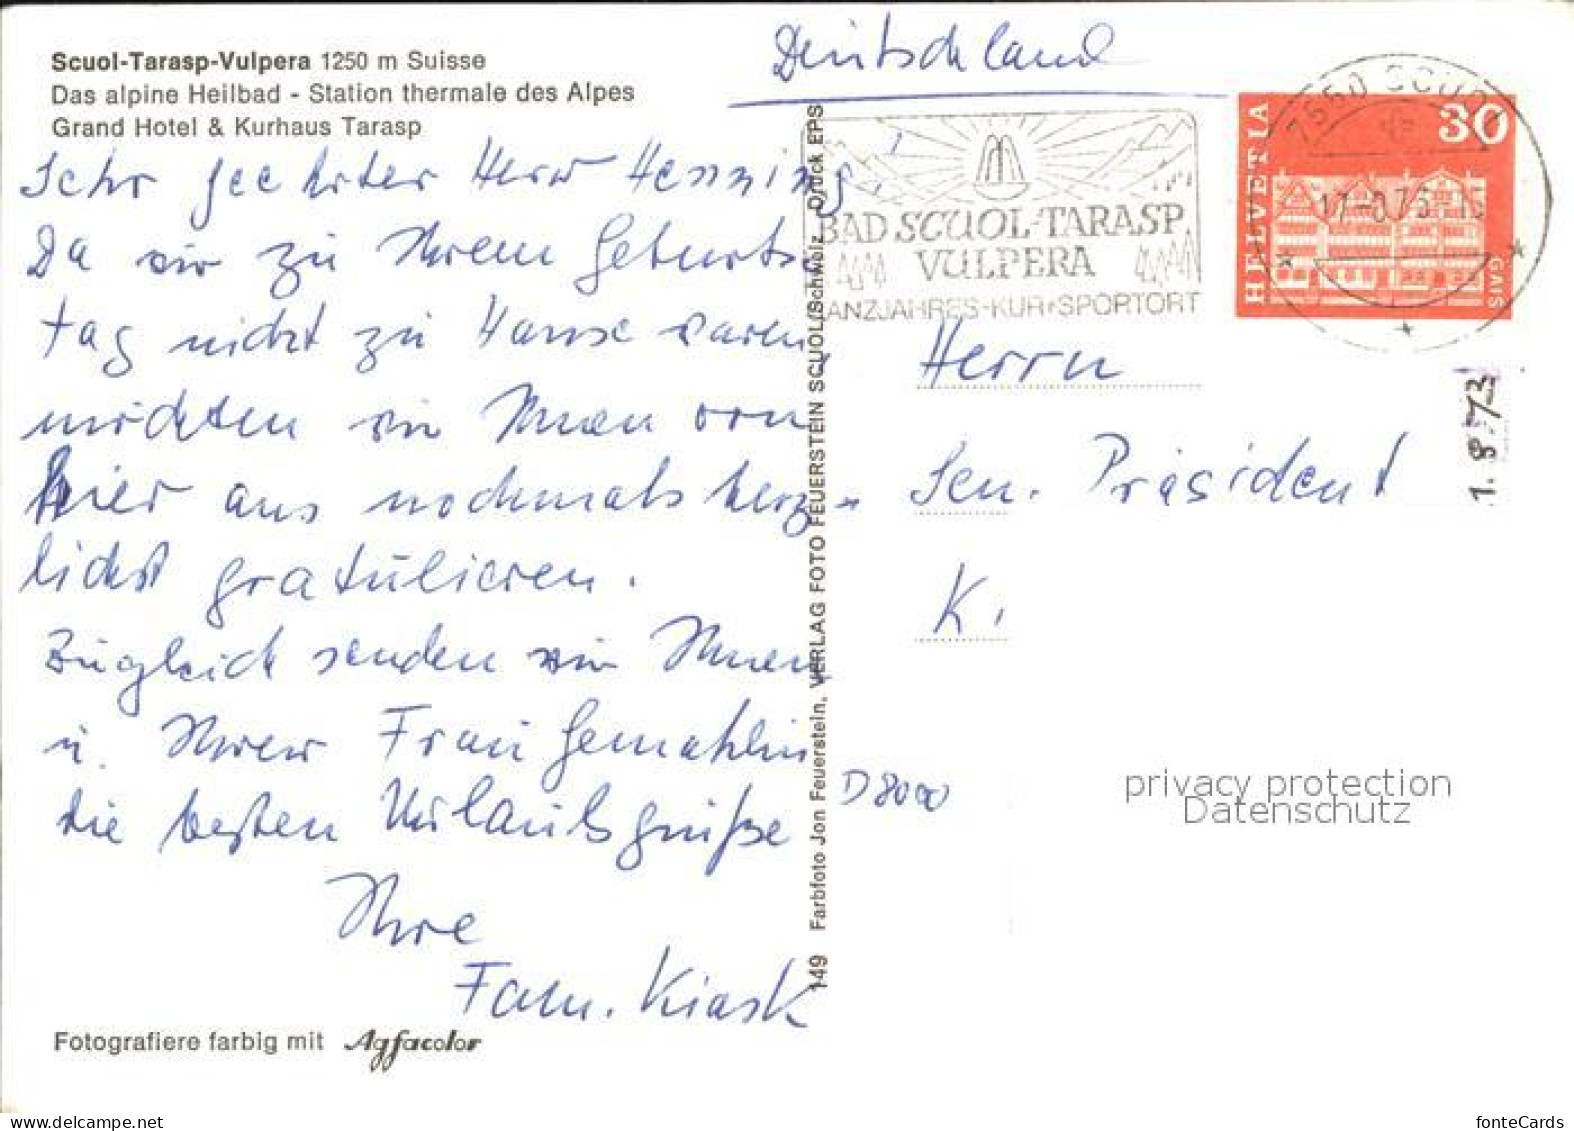 Scuol-Tarasp-Vulpera 1250 m Suisse
Das alpine Heilbad - Station thermale des Alpes
Grand Hotel & Kurhaus Tarasp
Sehr geehrter Herr Henning!
Da wir zu Ihrem Geburts-
tag nicht zu Hause waren,
möchten wir Ihnen von
hier aus nochmals herz-
lichst gratulieren.
Zugleich senden wir Ihnen
u. Ihrer Frau Gemahlin
die besten Urlaubsgrüße
Ihre
Fam. Kiask
Fotografiere farbig mit Agfacolor
149 Farbfoto Jon Feuerstein, VERLAG FOTO FEUERSTEIN SCUOL/Schweiz Druck EPS
Deutschland
BAD SCUOL-TARASP
VULPERA
ANZJAHRES-KUR+SPORTORT
7550 SCUOL
HELVETIA
30
GAIS
1.8.73
Herrn
Sen. Präsident
K.
D 8000
privacy protection
Datenschutz
fonteCards